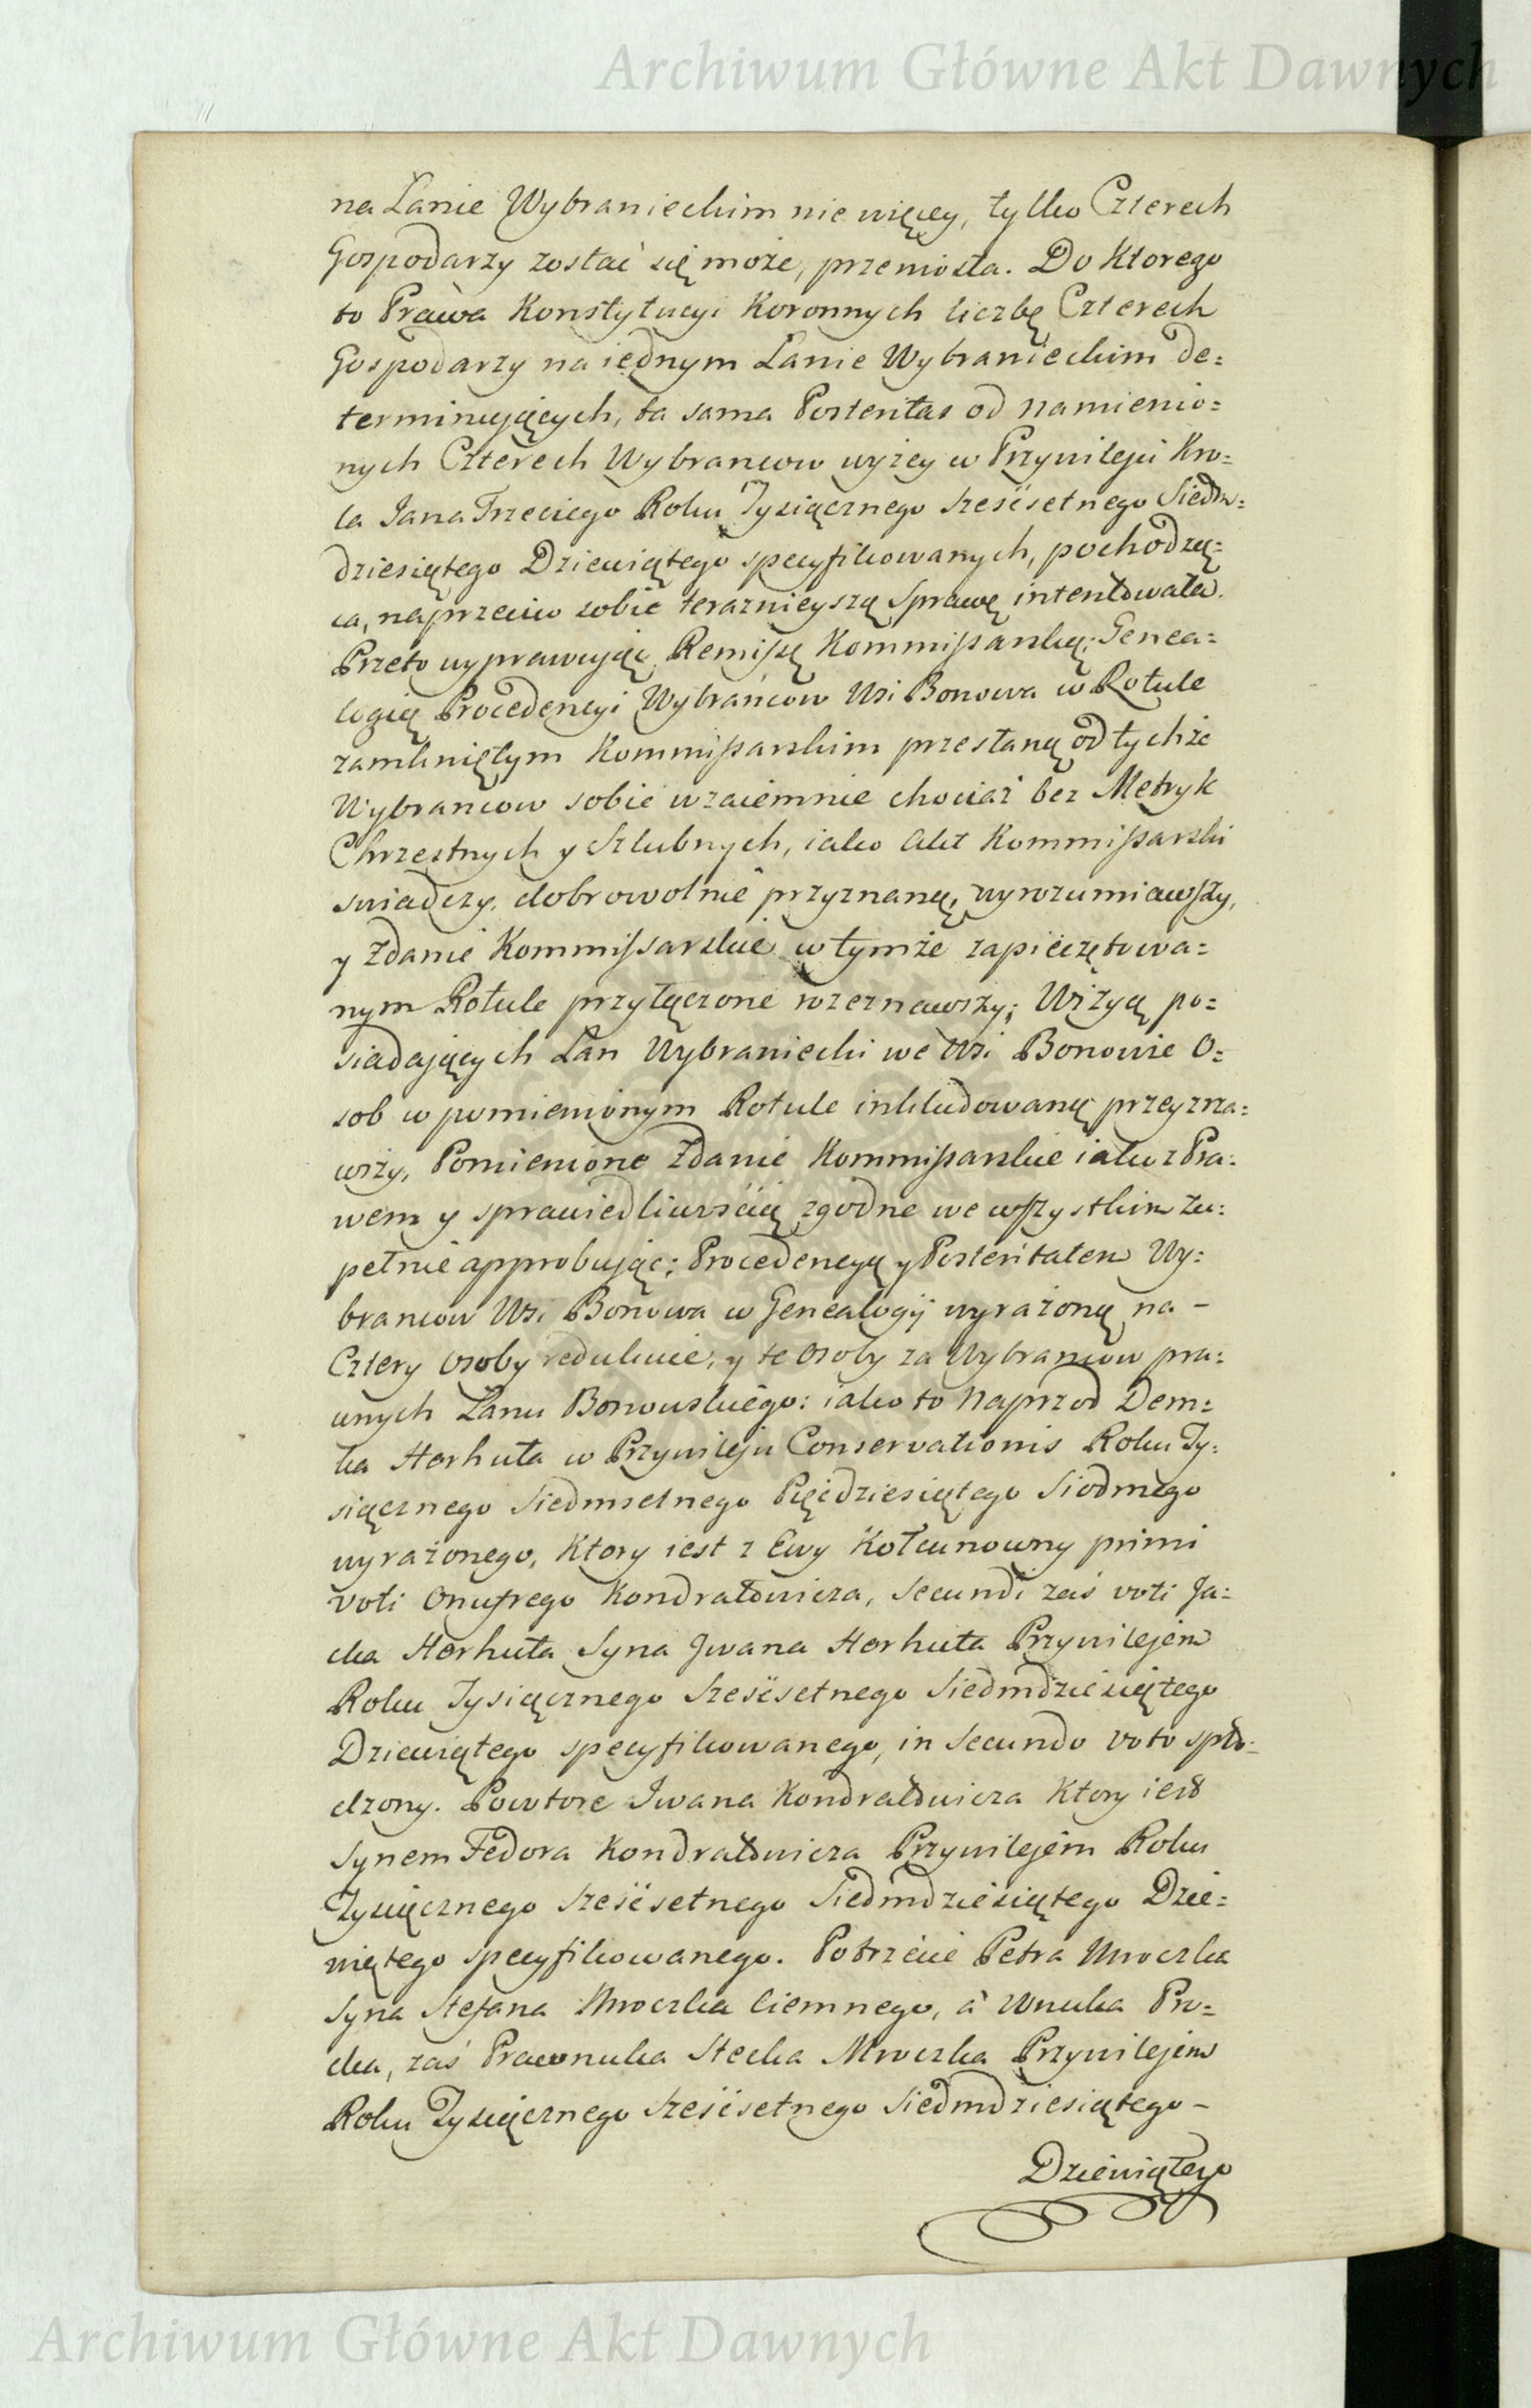 Archiwum Główne Akt Dawnych
na Łanie Wybranieckim nie więcey, tylko Czterech
Gospodarzy zostać się może, przeniosła. Do Ktorego
to Prawa Konstytucyi Koronnych liczbę Czterech
Gospodarzy na iednym Łanie Wybranieckim de=
terminujących, ta sama Posteritas od namienio=
nych Czterech Wybrancow wyżey w Przywileju Kro=
la Jana Trzeciego Roku Tysiącznego Sześćsetnego Siedm=
dziesiątego Dziewiątego specyfikowanych, pochodzą=
ca, naprzeciw sobie teraznieyszą Sprawę intentowała.
Przeto wyprawując Remissę Kommissarską; Genea=
logią Procedencyi Wybrańcow Wsi Bonowa w Rotule
zamkniętym Kommissarskim przesłaną od tychże
Wybrancow sobie wzaiemnie chociaż bez Metryk
Chrzestnych y Szlubnych, iako Akt Kommissarski
swiadczy, dobrowolnie przyznaną, wyrozumiawszy,
y Zdanie Kommissarskie w tymże zapieczętowa=
nym Rotule przyłączone rozeznawszy; Wizyą po=
siadających Łan Wybraniecki we Wsi Bonowie O=
sob w pomienionym Rotule inkludowaną przeyrza=
wszy, Pomienione Zdanie Kommissarskie iako z Pra=
wem y sprawiedliwością zgodne we wszystkim zu=
pełnie approbując; Procedencyą y Posteritatem Wy=
brancow Wsi Bonowa w Genealogij wyrażoną na –
Cztery Osoby redukuie, y te Osoby za Wybrancow pra=
wnych Łanu Bonowskiego: iako to Naprzod Dem=
ka Horhuta w Przywileju Conservationis Roku Ty=
siącznego Siedmsetnego Pięćdziesiątego Siodmego
wyrażonego, Ktory iest z Ewy Kołcunowny primi
voti Onufrego Kondratowicza, Secundi zaś voti Ja=
cka Horhuta Syna Jwana Horhuta Przywilejem
Roku Tysiącznego Sześćsetnego Siedmdziesiątego
Dziewiątego specyfikowanego, in Secundo voto spło=
dzony. Powtore Iwana Kondratowicza Ktory iest
Synem Fedora Kondratowicza Przywilejem Roku
Tysiącznego Sześćsetnego Siedmdziesiątego Dzie=
wiątego specyfikowanego. Potrzecie Petra Mroczka
Syna Stefana Mroczka Ciemnego, à Wnuka Pro=
cka, zaś Prawnuka Stecka Mroczka Przywilejem
Roku Tysiącznego Sześćsetnego Siedmdziesiątego –
Dziewiątego
Archiwum Główne Akt Dawnych